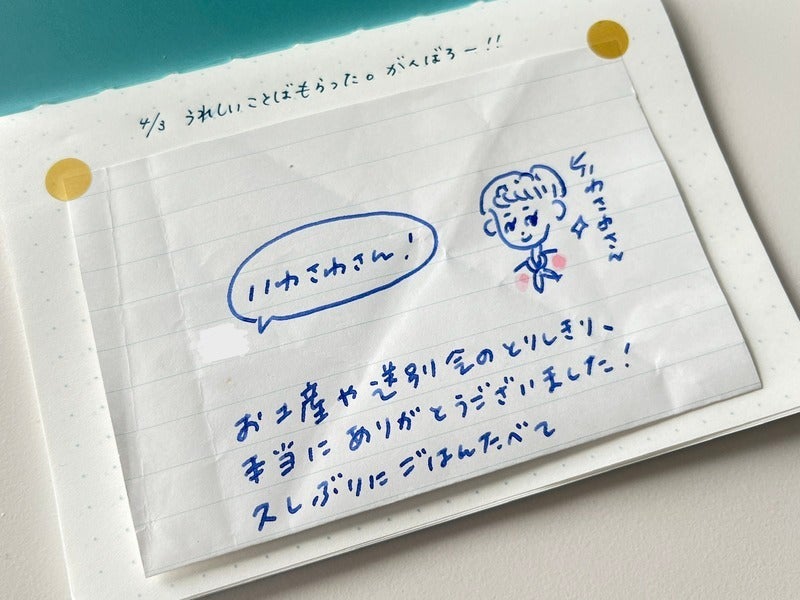 4/3 うれしいことばもらった。がんばろー!!
いわさわさん!
お土産や送別会のとりしきり、
本当にありがとうございました!
久しぶりにごはんたべて